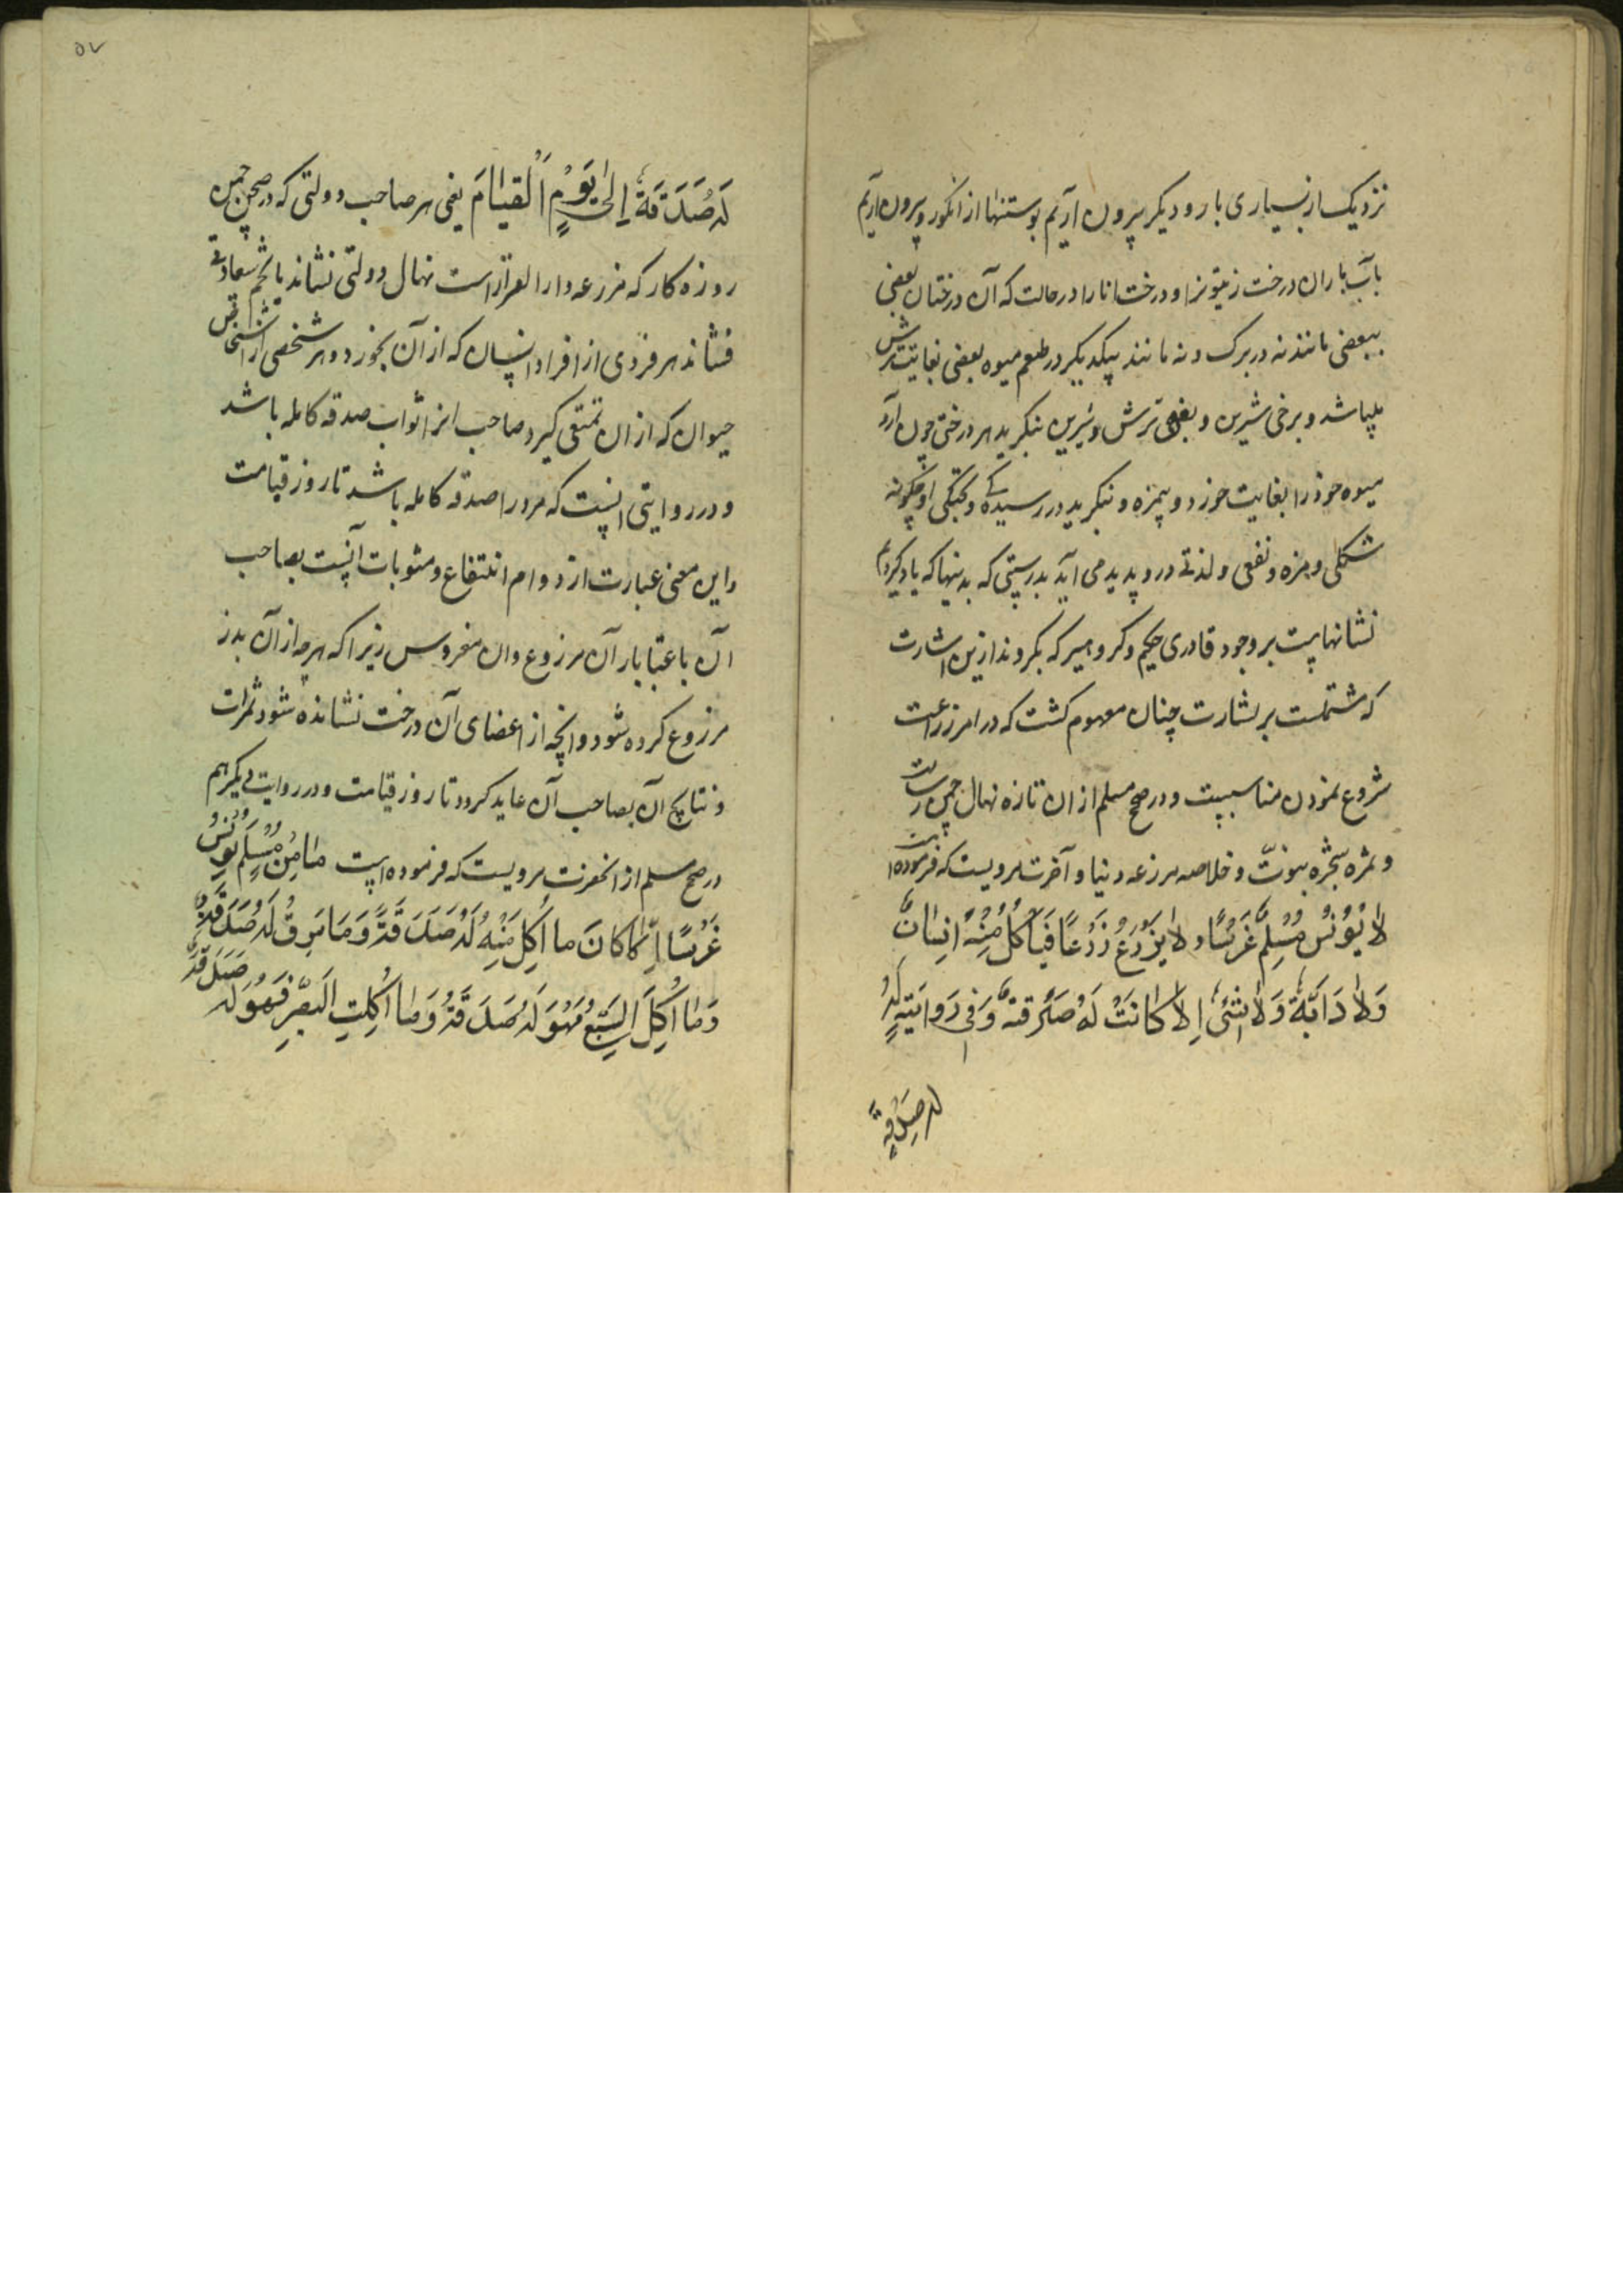 نزدیک از بسیاری بار و دیگر بیرون آریم بوستنها از انگور و بیرون آریم
بآب باران درخت زیتونرا و درخت انار را در حالت که آن درختان بعضی
ببعضی مانندنه در برک و نه مانند بیکدیگر در طعم میوه بعضی بغایت ترش
باشد و برخی شیرین و بعضی ترش و شیرین بنگرید بهر درختی چون آرد
میوه خود را بغایت خورد و بیمزه و بنگرید در رسیدگی و پختگی او چگونه
شکلی و مزه و نفعی و لذتی در و پدید می آید بدرستی که بدینها که یاد کردیم
نشانهایست بر وجود قادری حکیم و کروهیرکه بگروند ازین اشارت
که مشتملست بر بشارت چنان مفهوم کشت که در امر زراعت
شروع نمودن مناسبیست و در صحیح مسلم از ان تازه نهال چمن رسالت
و ثمره شجره نبوتّ و خلاصه مزرعه دنیا و آخرت مرویست که فرموده است
لا یُوُنسُ مُسْلِمٌ غَرْسًا و لا یَزْرَعُ زَرْعًا فَیَاکُلُ مِنْهُ اِنِسانٌ
وَلاٰ دَابَّةٌ وَلاٰ شَئٌ اِلاّٰ کانَتْ لَهُ صَدَقةٌ وَفِی رَوایَتِهٍ لَهُ
له صَدَقةٌ
۵۷
لَهُ صَدَقَةٌ اِلیٰ یَوْمٍ اَلْقیٰامَ یعنی هر صاحب دولتی که در صحن چمن
روزه کار که مزرعه دار القرار است نهال دولتی نشاند یا تخم سعادتی
فشاند هر فردی از افراد انسان که از آن بخورد و هر شخصی از اشخاص
حیوان که از ان تمتعی گیرد صاحب انرا ثواب صدقه کامله باشد
و در روایتی اینست که مرورا صدقه کامله باشد تا روز قیامت
واین معنی عبارت از دوام انتفاع و مثوبات آنست بصاحب
آن باعتبار بار آن مزروع وان مغروس زیرا که هرچه از آن بذر
مرزوع کرده شود وانچه از اعضای آن درخت نشانده شود ثمرات
و نتایج آن بصاحب آن عاید کردد تا روز قیامت و در روایت دیکر هم
در صحیح مسلم از انحضرت مرویست که فرموده است مٰا مِنْ مُسْلِمٍ یُوْنسُ
غَرْسًا اِلّا کانَ ما اُکِلَ مِنْهُ لَهُ صَدَقَةً وَمَا سُرِقُ لَهُ صَدَقَةٌ
وَمٰا اَکَلَ السَّبُعُ فَهُوَ لَهُ صَدَقَةٌ وَمٰا اَکَلَتِ الَطّیْرُ فَهُوَ لَهُ صَدَقَةٌ